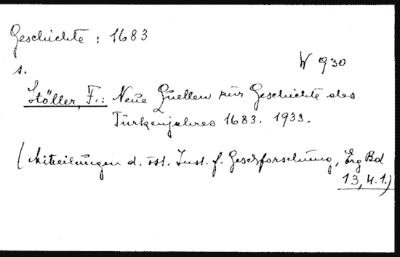 Geschichte : 1683
W 930
s.
Stöller, F.: Neue Quellen zur Geschichte des
Türkenjahres 1683. 1933.
(Mitteilungen d. öst. Inst. f. Geschforschung, Erg Bd
13, H. 1.)